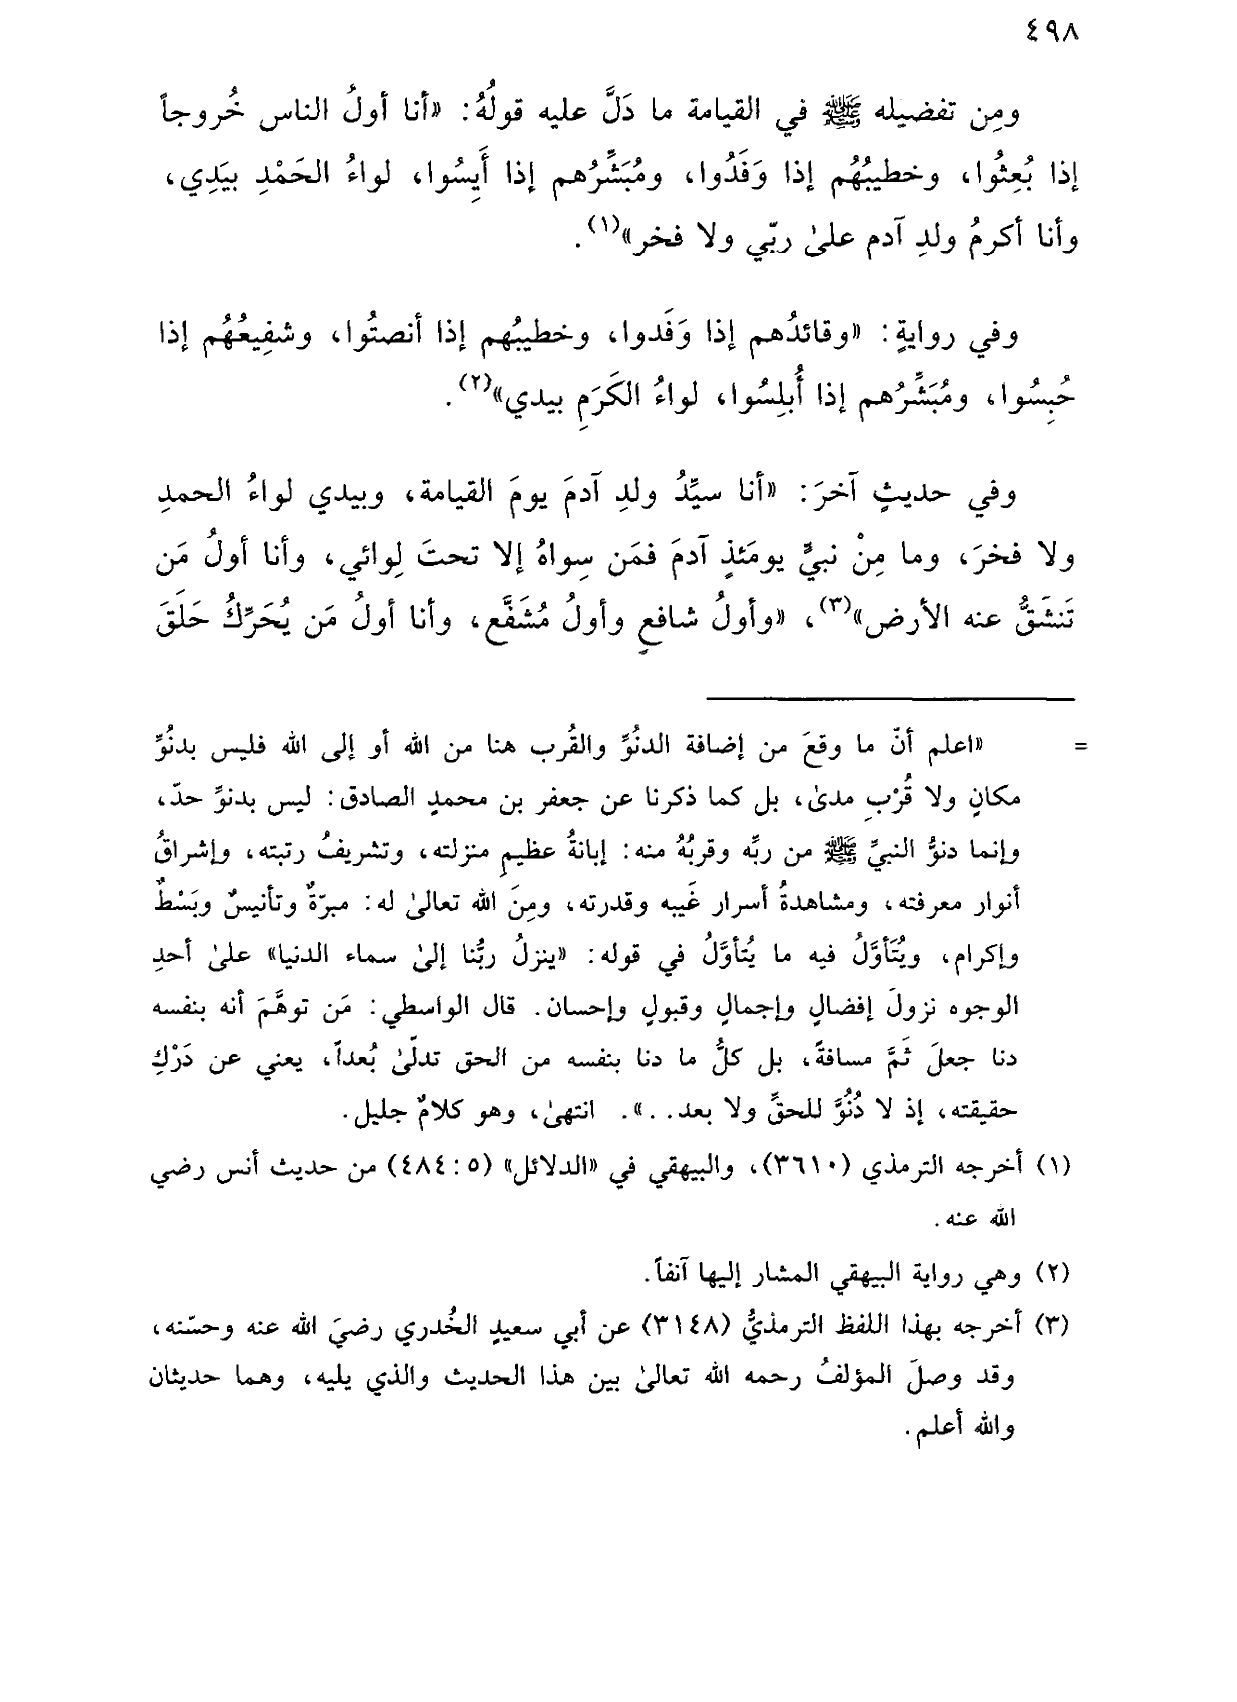 ٤٩٨
ومِن تفضيله ﷺ في القيامة ما دَلَّ عليه قولُهُ: «أنا أولُ الناس خُروجاً
إذا بُعِثُوا، وخطيبُهُم إذا وَفَدُوا، ومُبَشِّرُهم إذا أَيِسُوا، لواءُ الحَمْدِ بيَدِي،
وأنا أكرمُ ولدِ آدم علىٰ ربّي ولا فخر»(١).
وفي روايةٍ: «وقائدُهم إذا وَفَدوا، وخطيبُهم إذا أنصتُوا، وشفِيعُهُم إذا
حُبِسُوا، ومُبَشِّرُهم إذا أُبلِسُوا، لواءُ الكَرَمِ بيدي»(٢).
وفي حديثٍ آخرَ: «أنا سيِّدُ ولدِ آدمَ يومَ القيامة، وبيدي لواءُ الحمدِ
ولا فخرَ، وما مِنْ نبيٍّ يومَئذٍ آدمَ فمَن سِواهُ إلا تحتَ لِوائي، وأنا أولُ مَن
تَنشَقُّ عنه الأرض»(٣)، «وأولُ شافعٍ وأولُ مُشَفَّع، وأنا أولُ مَن يُحَرِّكُ حَلَقَ
= «اعلم أنّ ما وقعَ من إضافة الدنُوِّ والقُرب هنا من الله أو إلى الله فليس بدنُوِّ
مكانٍ ولا قُرْبِ مدىٰ، بل كما ذكرنا عن جعفر بن محمدٍ الصادق: ليس بدنوِّ حدّ،
وإنما دنوُّ النبيِّ ﷺ من ربِّه وقربُهُ منه: إبانةُ عظيمِ منزلته، وتشريفُ رتبته، وإشراقُ
أنوار معرفته، ومشاهدةُ أسرار غَيبه وقدرته، ومِنَ الله تعالىٰ له: مبرّةٌ وتأنيسٌ وبَسْطٌ
وإكرام، ويُتَأوَّلُ فيه ما يُتأوَّلُ في قوله: «ينزلُ ربُّنا إلىٰ سماء الدنيا» علىٰ أحدِ
الوجوه نزولَ إفضالٍ وإجمالٍ وقبولٍ وإحسان. قال الواسطي: مَن توهَّمَ أنه بنفسه
دنا جعلَ ثَمَّ مسافةً، بل كلُّ ما دنا بنفسه من الحق تدلّىٰ بُعداً، يعني عن دَرْكِ
حقيقته، إذ لا دُنُوَّ للحقِّ ولا بعد...». انتهىٰ، وهو كلامٌ جليل.
(١) أخرجه الترمذي (٣٦١٠)، والبيهقي في «الدلائل» (٥: ٤٨٤) من حديث أنس رضي
الله عنه.
(٢) وهي رواية البيهقي المشار إليها آنفاً.
(٣) أخرجه بهذا اللفظ الترمذيُّ (٣١٤٨) عن أبي سعيدٍ الخُدري رضيَ الله عنه وحسّنه،
وقد وصلَ المؤلفُ رحمه الله تعالىٰ بين هذا الحديث والذي يليه، وهما حديثان
والله أعلم.